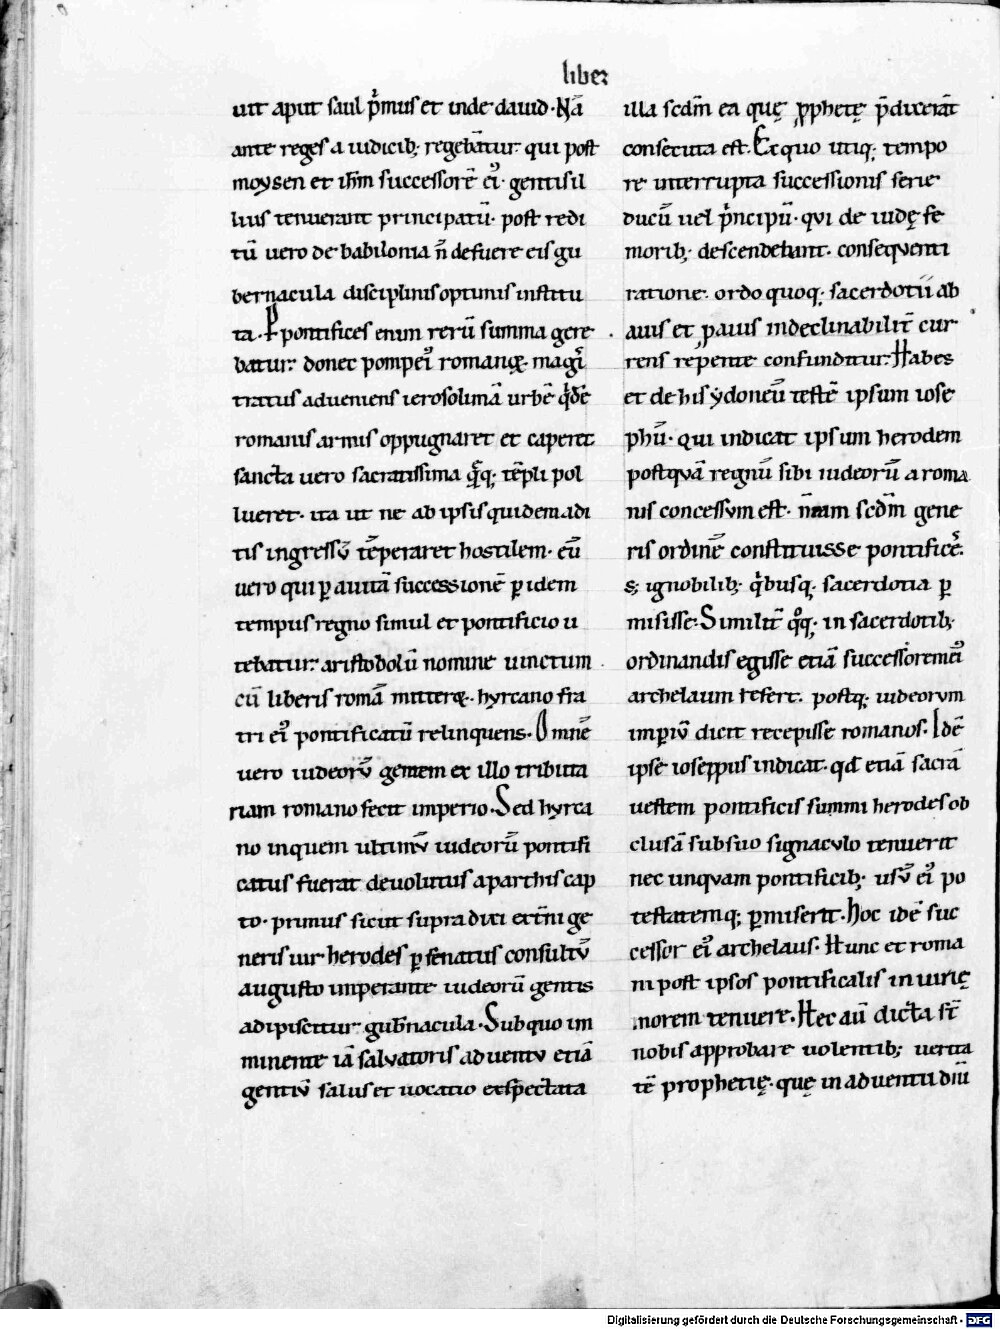 liber
uit aput saul p̊mus et inde dauid· Nā
ante reges a iudicib; regebāt᷑ur qui post
moysen et ihm̄ successorē eiꝰ gentis il
lius tenuerant principatū· post redi
tū uero de babilonia n̄ defuere eis gu
bernacula disciplinis optimis institu
ta· P pontifices enim rerū summa gere
batur· donec pompeiꝰ romanꝰ magi
tratus adueniens ierosolimā urbē qͥdē
romanis armis oppugnaret et caperet
sancta uero sacratissima qͣq; tēpli pol
lueret· ita ut ne ab ipsis quidem adi
tis ingressū tēperaret hostilem· eū
uero qui ꝑ auitā successionē ꝑ idem
tempus regno simul et pontificio u
tebatur· aristobolū nomine uinctum
cū liberis romā mittere· hyrcano fra
tri eiꝰ pontificatū relinquens· Omnē
uero iudeorū gentem ex illo tributa
riam romano fecit imperio· Sed hyrca
no inquem ultimū iudeorū pontifi
catus fuerat deuolutus a parthis cap
to· primus sicut supra dixi extn̄i ge
neris uir· herodes ꝑ senatus consultū
augusto imperante iudeorū gentis
adipiscitur gub̄nacula· Sub quo im
minente iā saluatoris aduentu etiā
gentiū salus et uocatio exspectata
illa scdm̄ ea quę ꝓphetę p̄dixerāt
consecuta est· Ex quo utiq; tempo
re interrupta successionis serie
ducū uel pͥncipū· qui de iudę fe
morib; descendebant· consequenti
ratione· ordo quoq; sacerdotii ab
auis et pauis indeclinabilit̄ cur
rens repente confunditur· Habes
et de his ydoneū testē ipsum iose
phū· qui indicat ipsum herodem
postquā regnū sibi iudeorū a roma
nis concessum est· nam scdm̄ gene
ris ordinē constituisse pontifices·
s; ignobilib; qͥbusq; sacerdotia ꝑ
misisse· Similit̄ qͦq; in sacerdotib;
ordinandis egisse etiā successorem eiꝰ
archelaum refert· postq; iudeorum
imꝑiū dicit recepisse romanos· Idē
ipse ioseppus indicat· qđ etiā sacrā
uestem pontificis summi herodes ob
clusā sub suo signaculo tenuerit
nec unquam pontificib; usū eiꝰ po
testatemq; ꝑmiserit· hoc idē suc
cessor eiꝰ archelaus· Hunc et roma
ni post ipsos pontificalis in uirię
morem tenuere· Hec aū dicta st̄
nobis approbare uolentib; uerita
tē prophetię· quę in aduentu dn̄i
Digitalisierung gefördert durch die Deutsche Forschungsgemeinschaft - DFG